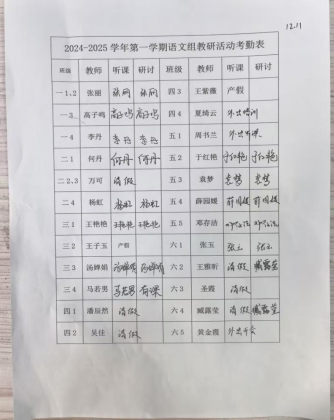 12.11
2024-2025学年第一学期语文组教研活动考勤表
班级 教师 听课 研讨 班级 教师 听课 研讨
一1、2 张丽 张丽 张丽 四3 王紫薇 产假
一3 高子鸣 高子鸣 高子鸣 四4 夏绮云 外出培训
一4 李丹 李丹 李丹 五1 周书兰 外出听课
二1 何丹 何丹 何丹 五2 于红艳 于红艳 于红艳
二2、3 万可 请假 五3 袁梦 袁梦 袁梦
二4 杨虹 杨虹 杨虹 五4 薛园媛 薛园媛 薛园媛
三1 王艳艳 王艳艳 王艳艳 五5 邓存洁 邓存洁 邓存洁
三2 王子玉 产假 六1 张玉 张玉 张玉
三3 汤婵娟 汤婵娟 汤婵娟 六2 王雅昕 请假 臧露莹
三4 马若男 马若男 有课 六3 圣霞 请假
四1 潘辰然 请假 六4 臧露莹 请假
四2 吴佳 请假 六5 黄金霞 外出开会